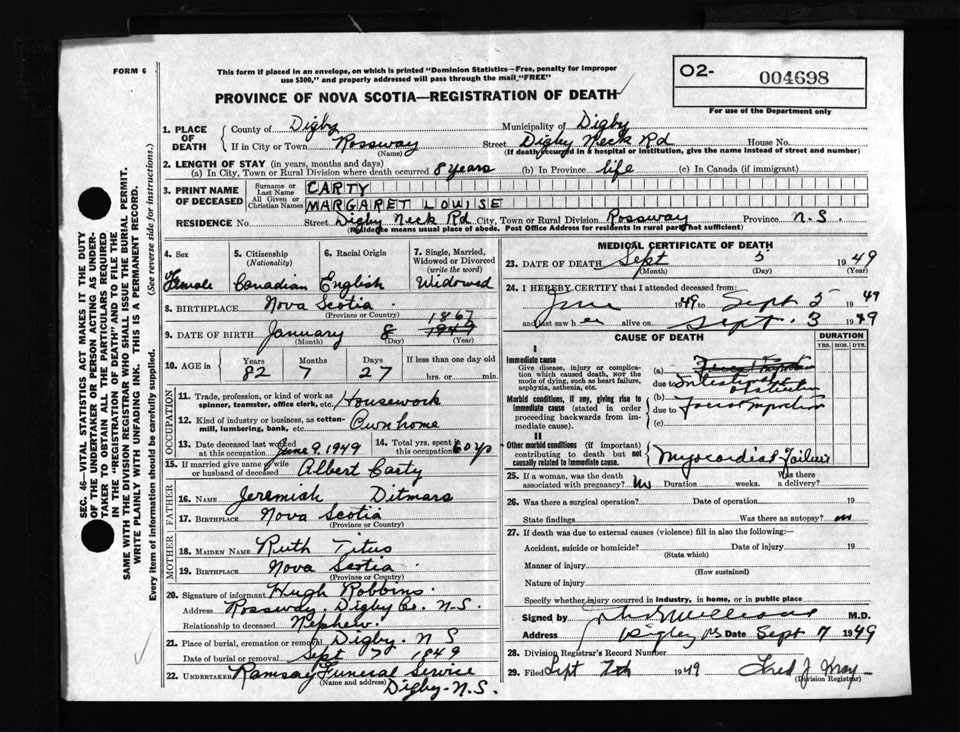 FORM 6
This form if placed in an envelope, on which is printed "Dominion Statistics—Free, penalty for improper
use $300," and properly addressed will pass through the mail "FREE"
O2- 004698
For use of the Department only
PROVINCE OF NOVA SCOTIA—REGISTRATION OF DEATH
1. PLACE OF DEATH
County of Digby Municipality of Digby
If in City or Town Rossway Street Digby Neck Rd House No.
(Name) (If death occurred in a hospital or institution, give the name instead of street and number)
2. LENGTH OF STAY (in years, months and days)
(a) In City, Town or Rural Division where death occurred 8 years (b) In Province life (c) In Canada (if immigrant)
3. PRINT NAME OF DECEASED
Surname or Last Name CARTY
All Given or Christian Names MARGARET LOUISE
RESIDENCE No. Street Digby Neck Rd City, Town or Rural Division Rossway Province N.S.
(Residence means usual place of abode. Post Office Address for residents in rural parts not sufficient)
SEC. 46—VITAL STATISTICS ACT MAKES IT THE DUTY
OF THE UNDERTAKER OR PERSON ACTING AS UNDER-
TAKER TO OBTAIN ALL THE PARTICULARS REQUIRED
IN THE "REGISTRATION OF DEATH" AND TO FILE THE
SAME WITH THE DIVISION REGISTRAR WHO SHALL ISSUE THE BURIAL PERMIT.
WRITE PLAINLY WITH UNFADING INK. THIS IS A PERMANENT RECORD.
Every item of information should be carefully supplied. (See reverse side for instructions.)
4. Sex
Female
5. Citizenship
(Nationality)
Canadian
6. Racial Origin
English
7. Single, Married,
Widowed or Divorced
(write the word)
Widowed
8. BIRTHPLACE Nova Scotia
(Province or Country)
1867
9. DATE OF BIRTH January 8 1949
(Month) (Day) (Year)
10. AGE in
Years Months Days If less than one day old
82 7 27 hrs. or min.
OCCUPATION
11. Trade, profession, or kind of work as
spinner, teamster, office clerk, etc. Housework
12. Kind of industry or business, as cotton-
mill, lumbering, bank, etc. Own home
13. Date deceased last worked
at this occupation June 9, 1949
14. Total yrs. spent in
this occupation 60 yrs
15. If married give name of wife
or husband of deceased Albert Carty
FATHER
16. NAME Jeremiah Ditmars
17. BIRTHPLACE Nova Scotia
(Province or Country)
MOTHER
18. MAIDEN NAME Ruth Titus
19. BIRTHPLACE Nova Scotia
(Province or Country)
20. Signature of informant Hugh Robbins
Address Rossway, Digby Co. N.S.
Relationship to deceased Nephew.
21. Place of burial, cremation or removal Digby. N S
Date of burial or removal Sept 7 1949
22. UNDERTAKER Ramsay Funeral Service
(Name and address) Digby-N.S.
MEDICAL CERTIFICATE OF DEATH
23. DATE OF DEATH Sept 5 1949
(Month) (Day) (Year)
24. I HEREBY CERTIFY that I attended deceased from:
June 1949 to Sept 5 1949
and last saw her alive on Sept. 3 1949
CAUSE OF DEATH
DURATION
YRS. MOS. DYS.
I
Immediate cause
Give disease, injury or complica-
tion which caused death, NOT the
mode of dying, such as heart failure,
asphyxia, asthenia, etc.
(a) Faecal Impaction
due to Intestinal obstruction
Morbid conditions, if any, giving rise to
immediate cause (stated in order
proceeding backwards from im-
mediate cause).
(b)
due to Faecal Impaction
(c)
II
Other morbid conditions (if important)
contributing to death but not
causally related to immediate cause.
Myocardial Failure
25. If a woman, was the death
associated with pregnancy? No Duration weeks. Was there
a delivery?
26. Was there a surgical operation? Date of operation 19
State findings Was there an autopsy? no
27. If death was due to external causes (violence) fill in also the following:—
Accident, suicide or homicide? Date of injury 19
(State which)
Manner of injury
(How sustained)
Nature of injury
Specify whether injury occurred in industry, in home, or in public place
Signed by M.D.
Address Digby NS Date Sept 7 1949
28. Division Registrar's Record Number
29. Filed Sept 7th 1949
(Division Registrar)